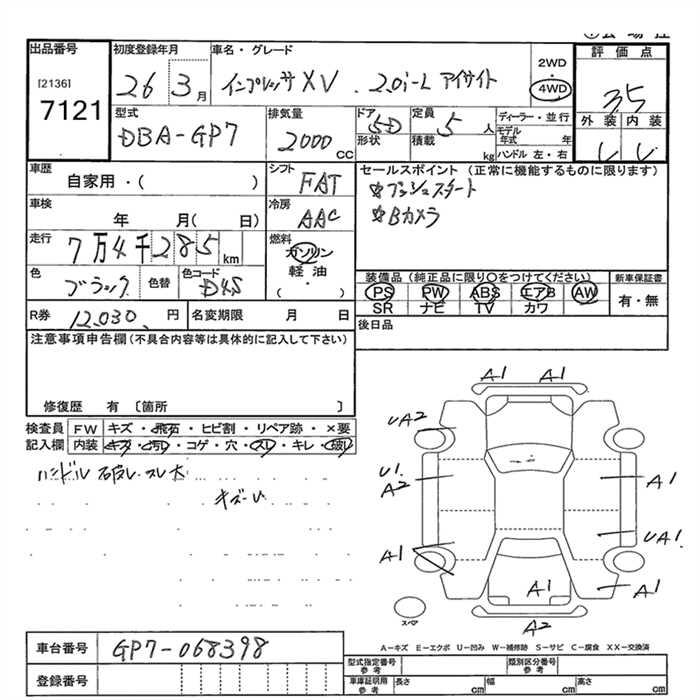 出品番号 初度登録年月 車名・グレード 2WD ・ 4WD 評価点
[2136] 7121 26 3月 インプレッサXV 2.0i-L アイサイト 3.5
型式 排気量 ドア 定員 ディーラー・並行 外装 内装
DBA-GP7 2000 CC 5D 形状 5人 積載 kg モデル年式 年 ハンドル 左・右
車歴 シフト セールスポイント (正常に機能するものに限ります)
自家用・( ) FAT ☆プッシュスタート
車検 冷房 ☆Bカメラ
年 月( 日) AAC
走行 燃料
7万4千285km ガソリン
色 色替 色コード 軽油 装備品(純品に限り○をつけてください) 新車保証書
ブラック D4S ・( ) PS PW ABS エアB AW 有・無
SR ナビ TV カワ
R券 12,030 円 名変期限 月 日 後日品
注意事項申告欄(不具合内容等は具体的に記入して下さい)
修復歴 有 〔箇所 〕
検査員 FW キズ・飛石・ヒビ割・リペア跡・×要
記入欄 内装 キズ・汚レ・コゲ・穴・スレ・キレ・破レ
ハンドル 破レ・スレ大
キズ・U
A1 A1
UA2
U1 A2 A1
UA1
A1 A1 A1
スペア A2
A-キズ E-エクボ U-凹み W-補修跡 S-サビ C-腐食 XX-交換済
車台番号 GP7-068398
型式指定番号 参考 類別区分番号 参考
登録番号 車庫証明用 参考 長さ cm 幅 cm 高さ cm